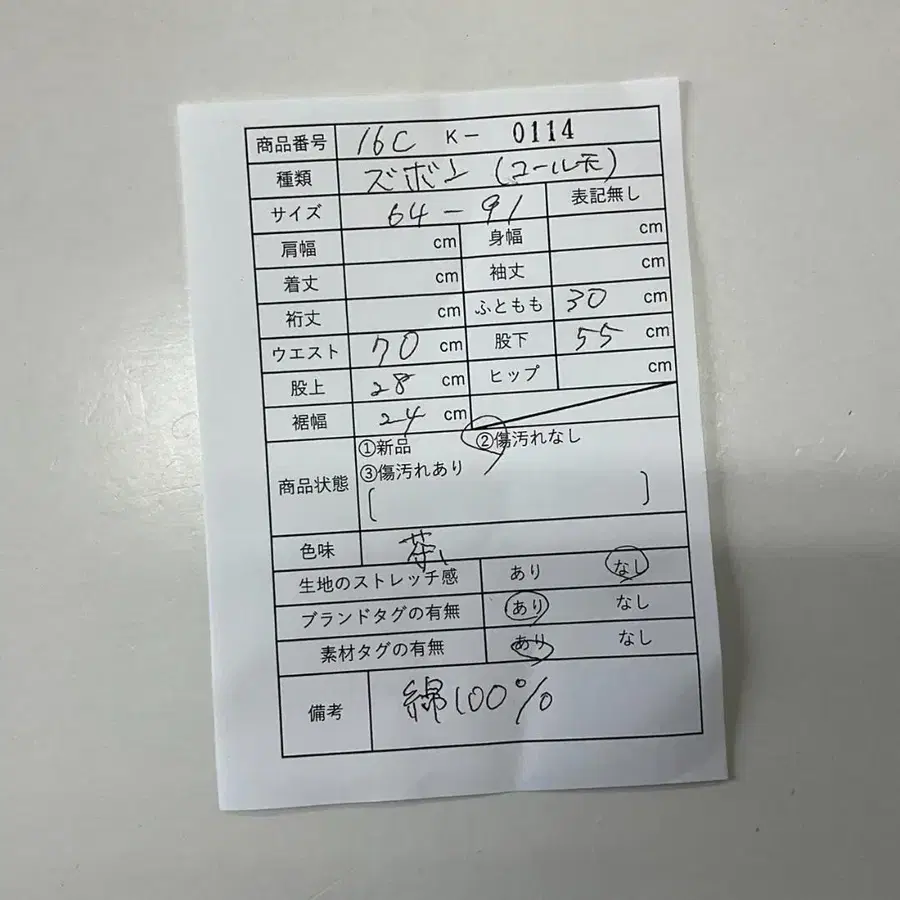 商品番号 16C K- 0114
種類 ズボン (コール天)
サイズ 64-91 表記無し
肩幅 cm 身幅 cm
着丈 cm 袖丈 cm
裄丈 cm ふともも 30 cm
ウエスト 70 cm 股下 55 cm
股上 28 cm ヒップ cm
裾幅 24 cm
商品状態 ①新品 ②傷汚れなし
③傷汚れあり
( )
色味 茶
生地のストレッチ感 あり なし
ブランドタグの有無 あり なし
素材タグの有無 あり なし
備考 綿100%